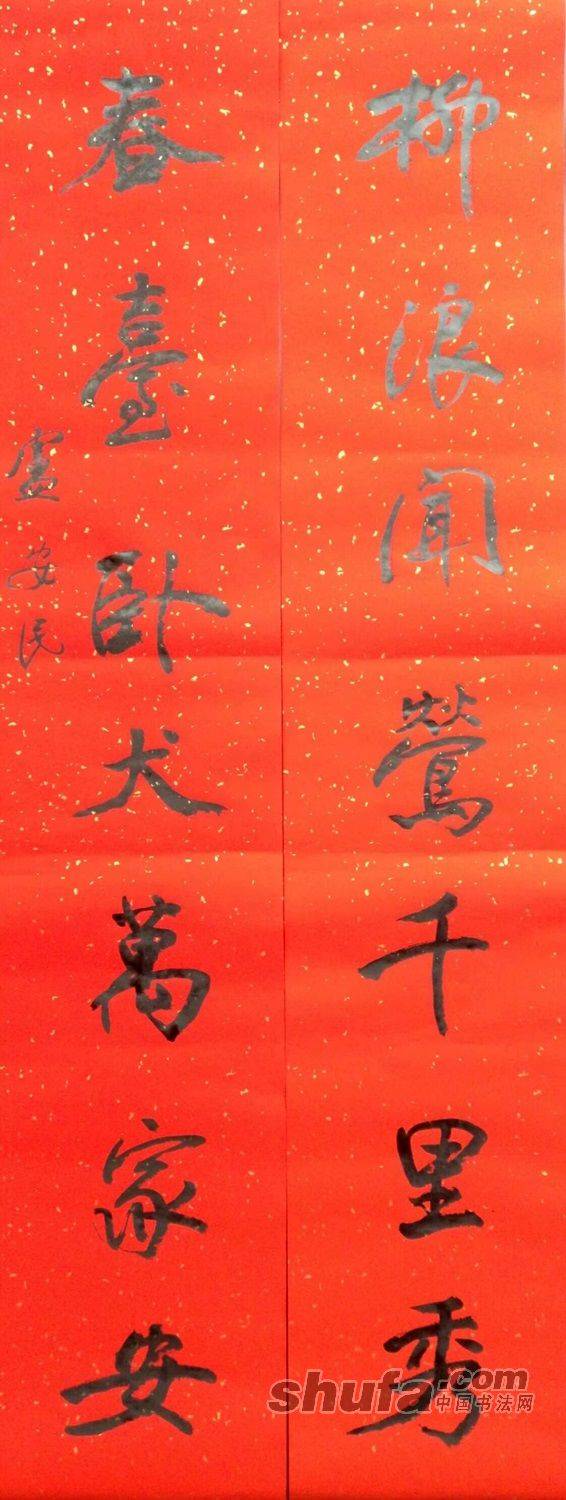 柳浪聞鶯千里秀
春臺卧犬萬家安
盧安民
shufa.com
中国书法网